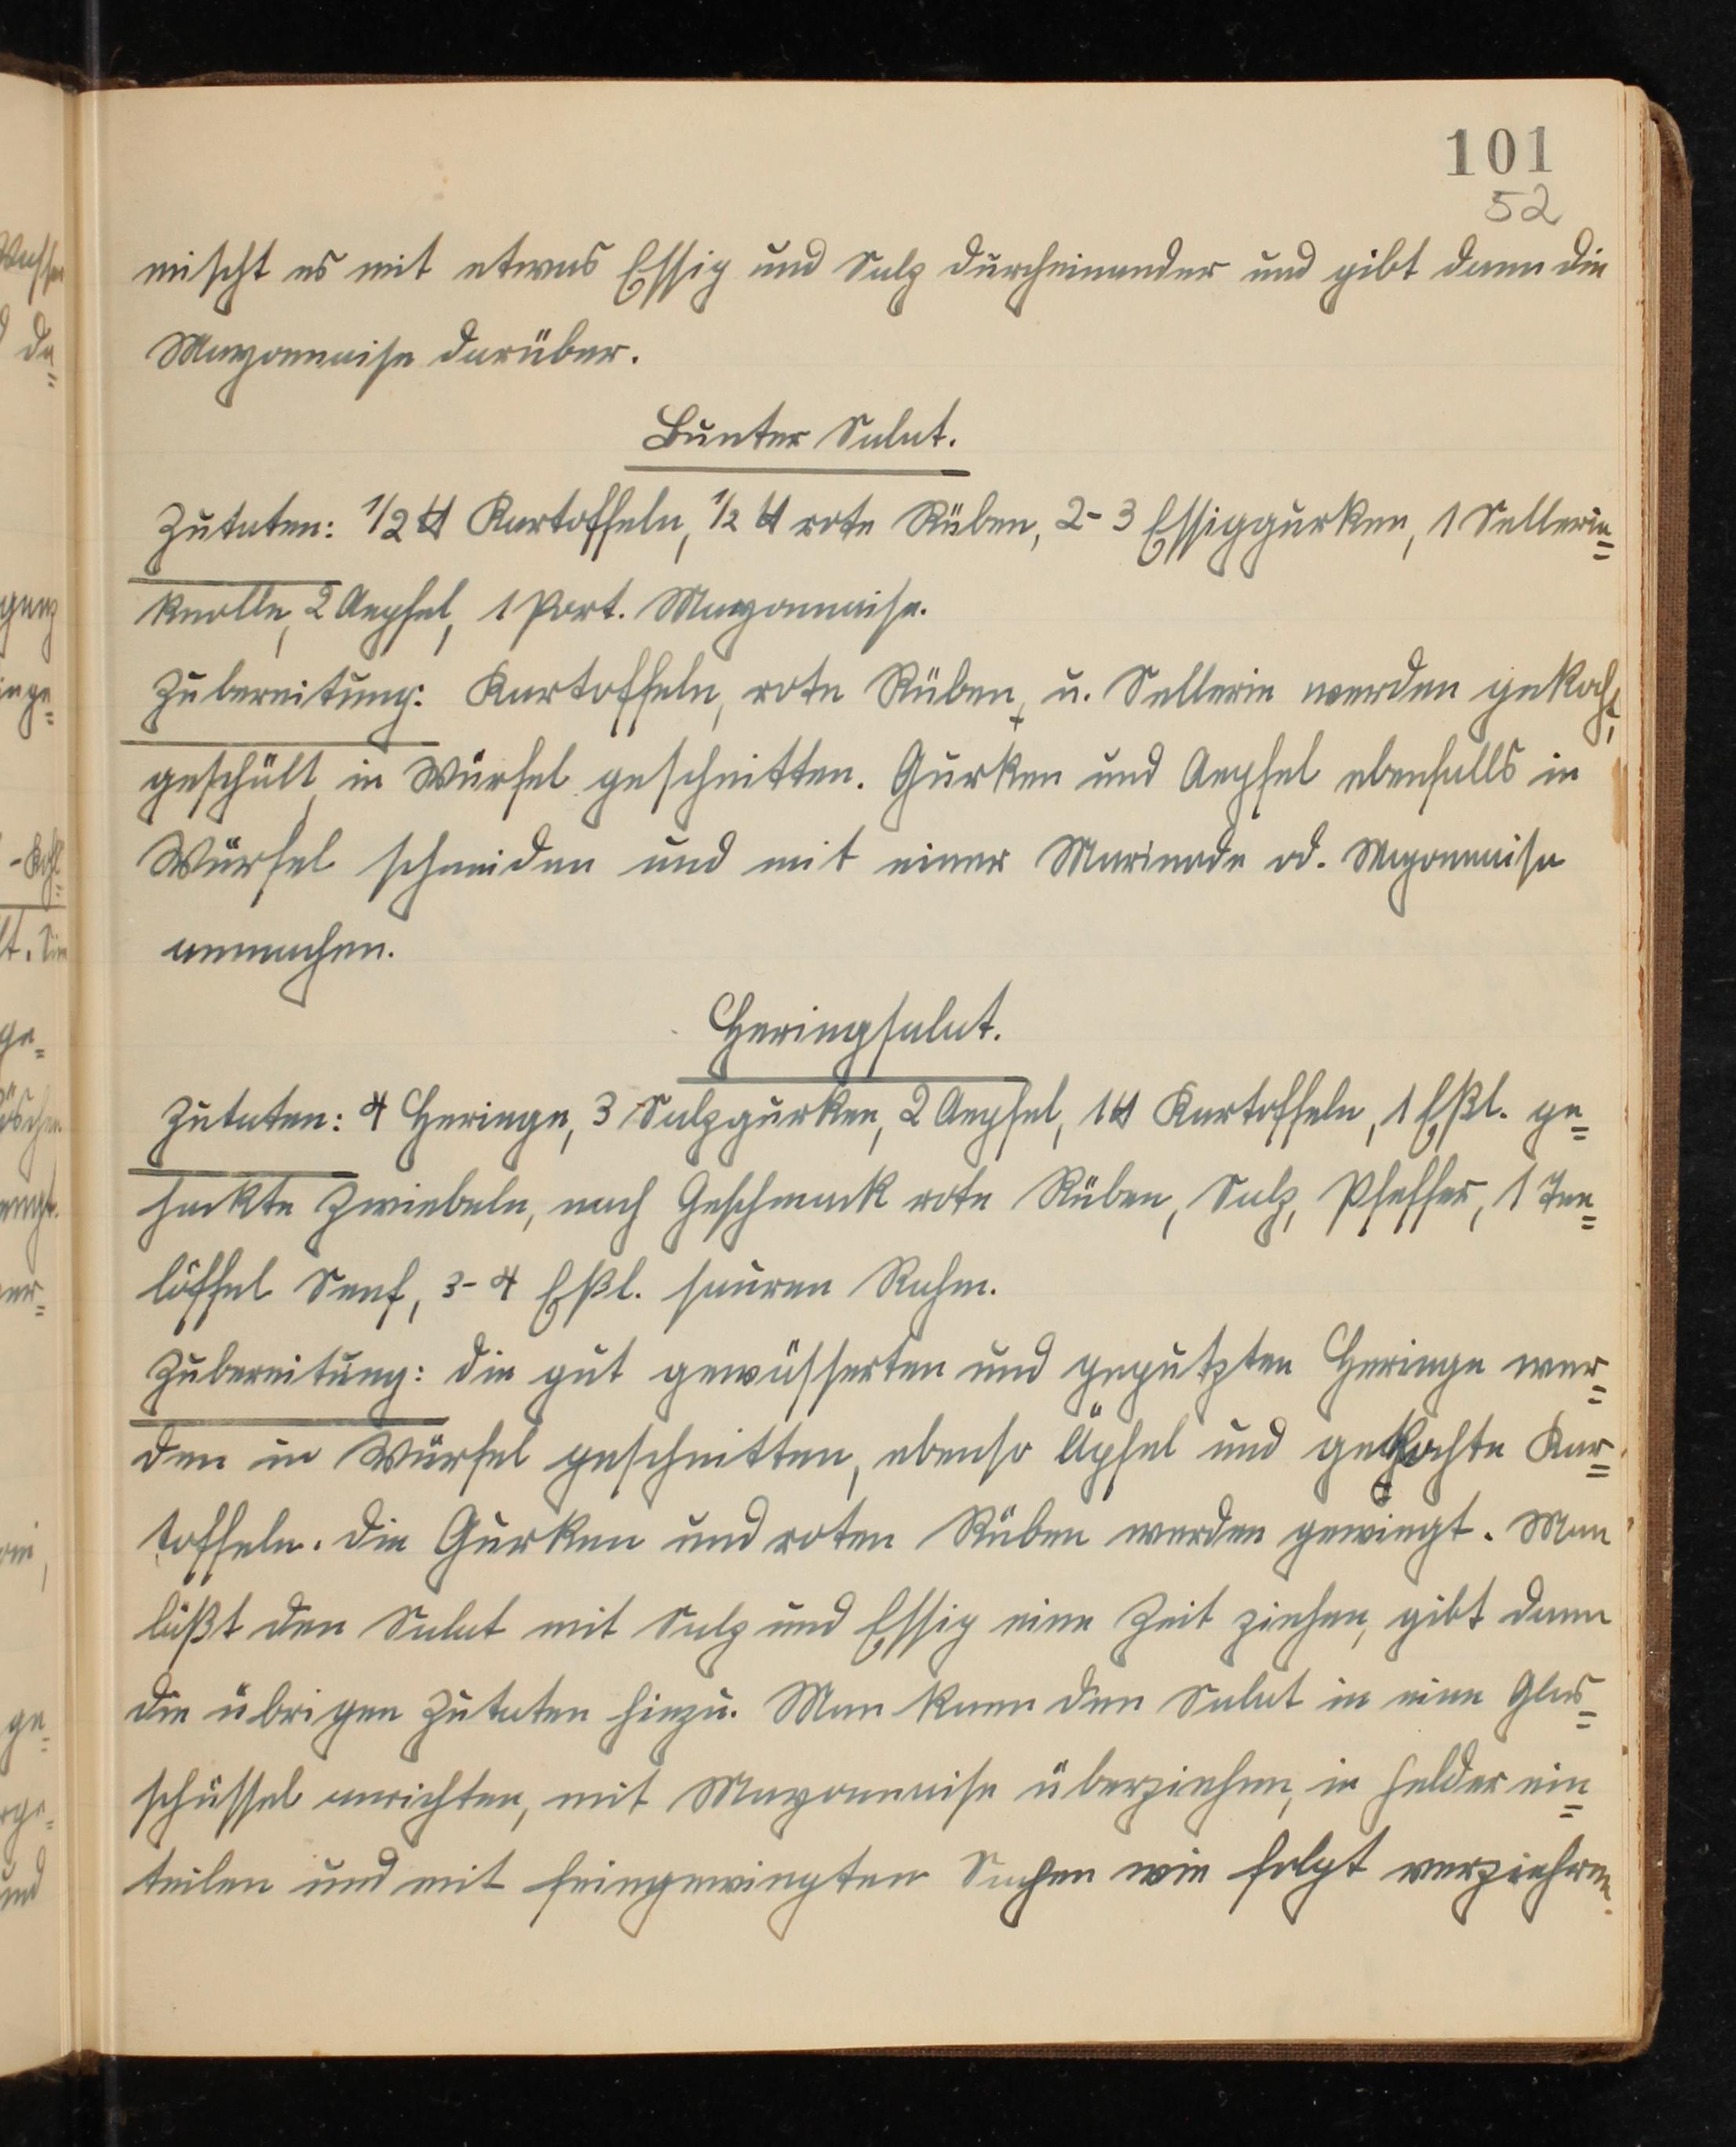 101
52
mischt es mit etwas Essig und Salz durcheinander und gibt dann die
Mayonnaise darüber.
Bunter Salat.
Zutaten: 1/2 ℔ Kartoffeln, 1/2 ℔ rote Rüben, 2-3 Essiggurken, 1 Sellerie=
knolle, 2 Aepfel, 1 Port. Mayonnaise.
Zubereitung: Kartoffeln, rote Rüben, u. Sellerie werden gekocht,
geschält, in Würfel geschnitten. Gurken und Aepfel ebenfalls in
Würfel schneiden und mit einer Marinade od. Mayonnaise
anmachen.
Heringsalat.
Zutaten: 4 Heringe, 3 Salzgurken, 2 Aepfel, 1 ℔ Kartoffeln, 1 Eßl. ge=
hackte Zwiebeln, nach Geschmack rote Rüben, Salz, Pfeffer, 1 Tee=
löffel Senf, 3-4 Eßl. sauren Rahm.
Zubereitung: die gut gewässerten und geputzten Heringe wer=
den in Würfel geschnitten, ebenso Äpfel und gekochte Kar=
toffeln. die Gurken und roten Rüben werden gewiegt. Man
läßt den Salat mit Salz und Essig eine Zeit ziehen, gibt dann
die übrigen Zutaten hinzu. Man kann den Salat in eine Glas=
schüssel anrichten, mit Mayonnaise überziehen, in Felder ein=
teilen und mit feingewiegten Sachen wie folgt verziehren.